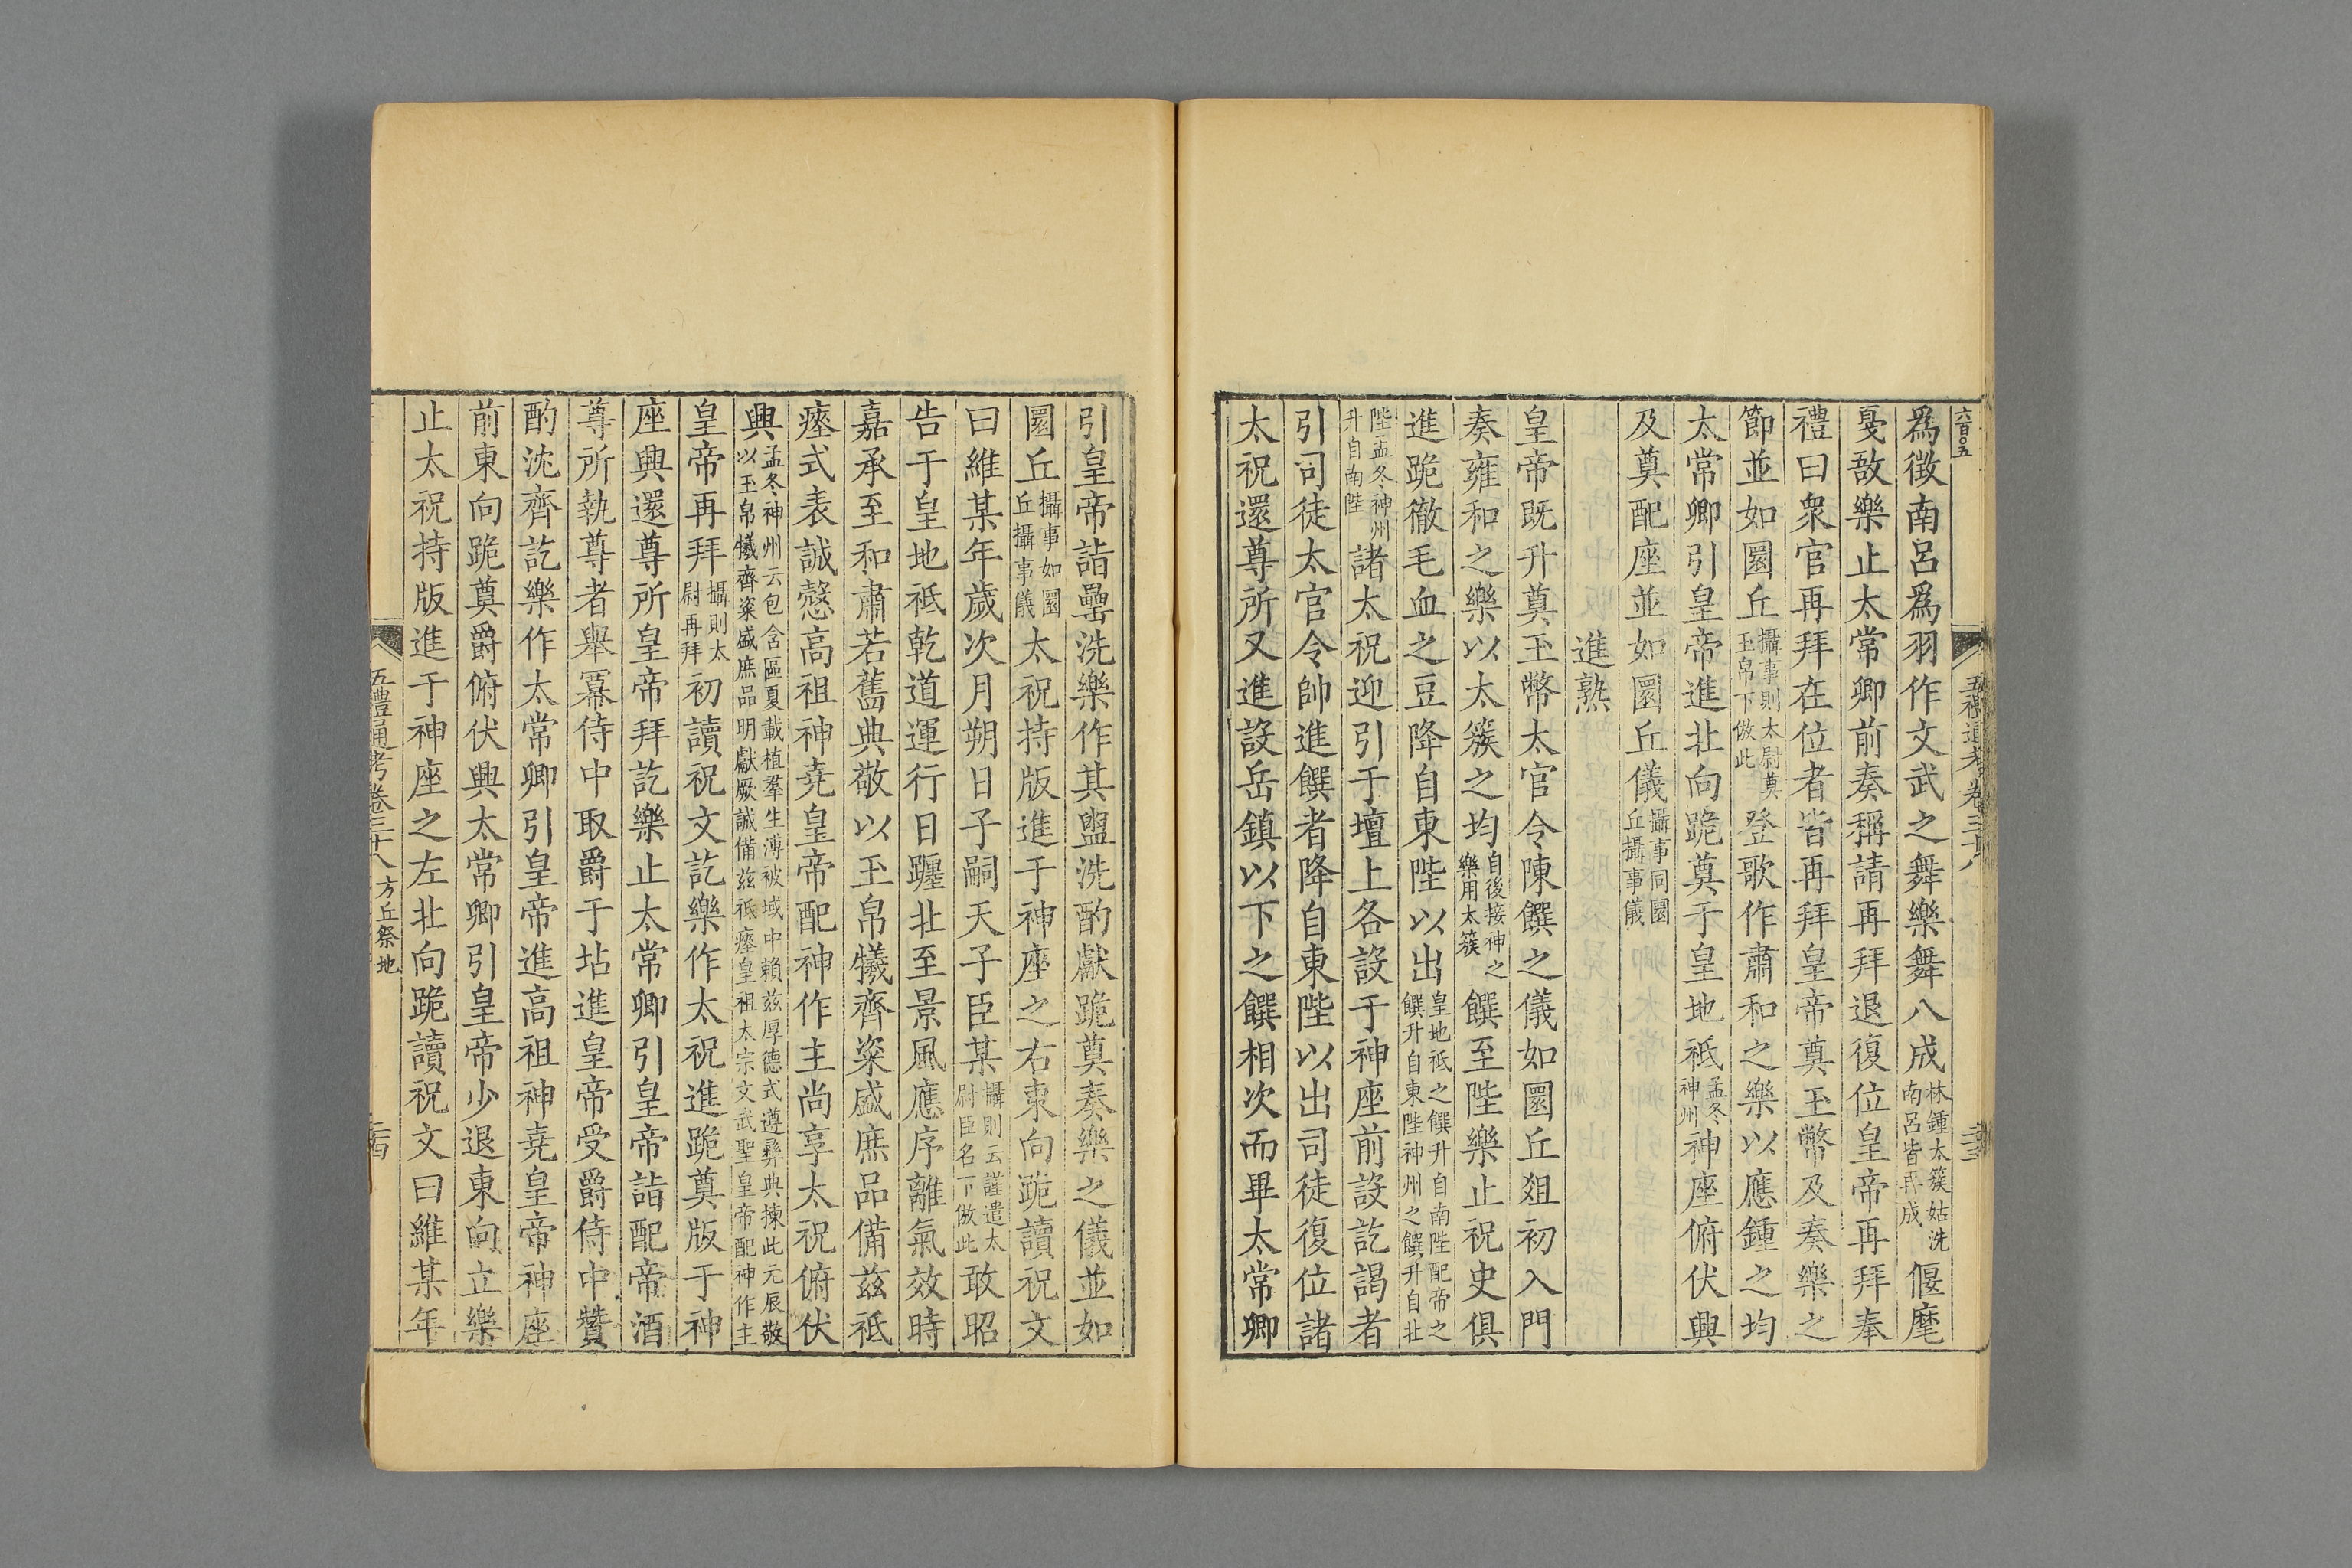 六百○五
五禮通考卷三十八
爲徵南呂爲羽作文武之舞樂舞八成林鍾太簇姑洗南呂皆再成偃麾
戞敔樂止太常卿前奏稱請再拜退復位皇帝再拜奉
禮曰衆官再拜在位者皆再拜皇帝奠玉幣及奏樂之
節並如圜丘攝事則太尉奠玉帛下倣此登歌作肅和之樂以應鍾之均
太常卿引皇帝進北向跪奠于皇地祇孟冬神州神座俯伏興
及奠配座並如圜丘儀攝事同圜丘攝事儀
進熟
皇帝既升奠玉幣太官令陳饌之儀如圜丘爼初入門
奏雍和之樂以太簇之均自後接神之樂用太簇饌至陛樂止祝史俱
進跪徹毛血之豆降自東陛以出皇地祇之饌升自南陛配帝之饌升自東陛神州之饌升自北
陛孟冬神州升自南陛諸太祝迎引于壇上各設于神座前設訖謁者
引司徒太官令帥進饌者降自東陛以出司徒復位諸
太祝還尊所又進設岳鎮以下之饌相次而畢太常卿
引皇帝詣罍洗樂作其盥洗酌獻跪奠奏樂之儀並如
圜丘攝事如圜丘攝事儀太祝持版進于神座之右東向跪讀祝文
曰維某年歲次月朔日子嗣天子臣某攝則云謹遣太尉臣名下倣此敢昭
告于皇地祇乾道運行日躔北至景風應序離氣效時
嘉承至和肅若舊典敬以玉帛犧齊粢盛庶品備兹祇
瘞式表誠慤高祖神堯皇帝配神作主尚享太祝俯伏
興孟冬神州云包含區夏載植羣生溥被域中賴兹厚德式遵彝典揀此元辰敬以玉帛犧齊粢盛庶品明獻厥誠備兹祇瘞皇祖太宗文武聖皇帝配神作主
皇帝再拜攝則太尉再拜初讀祝文訖樂作太祝進跪奠版于神
座興還尊所皇帝拜訖樂止太常卿引皇帝詣配帝酒
尊所執尊者舉冪侍中取爵于坫進皇帝受爵侍中贊
酌沈齊訖樂作太常卿引皇帝進高祖神堯皇帝神座
前東向跪奠爵俯伏興太常卿引皇帝少退東向立樂
止太祝持版進于神座之左北向跪讀祝文曰維某年
五禮通考卷三十八方丘祭地